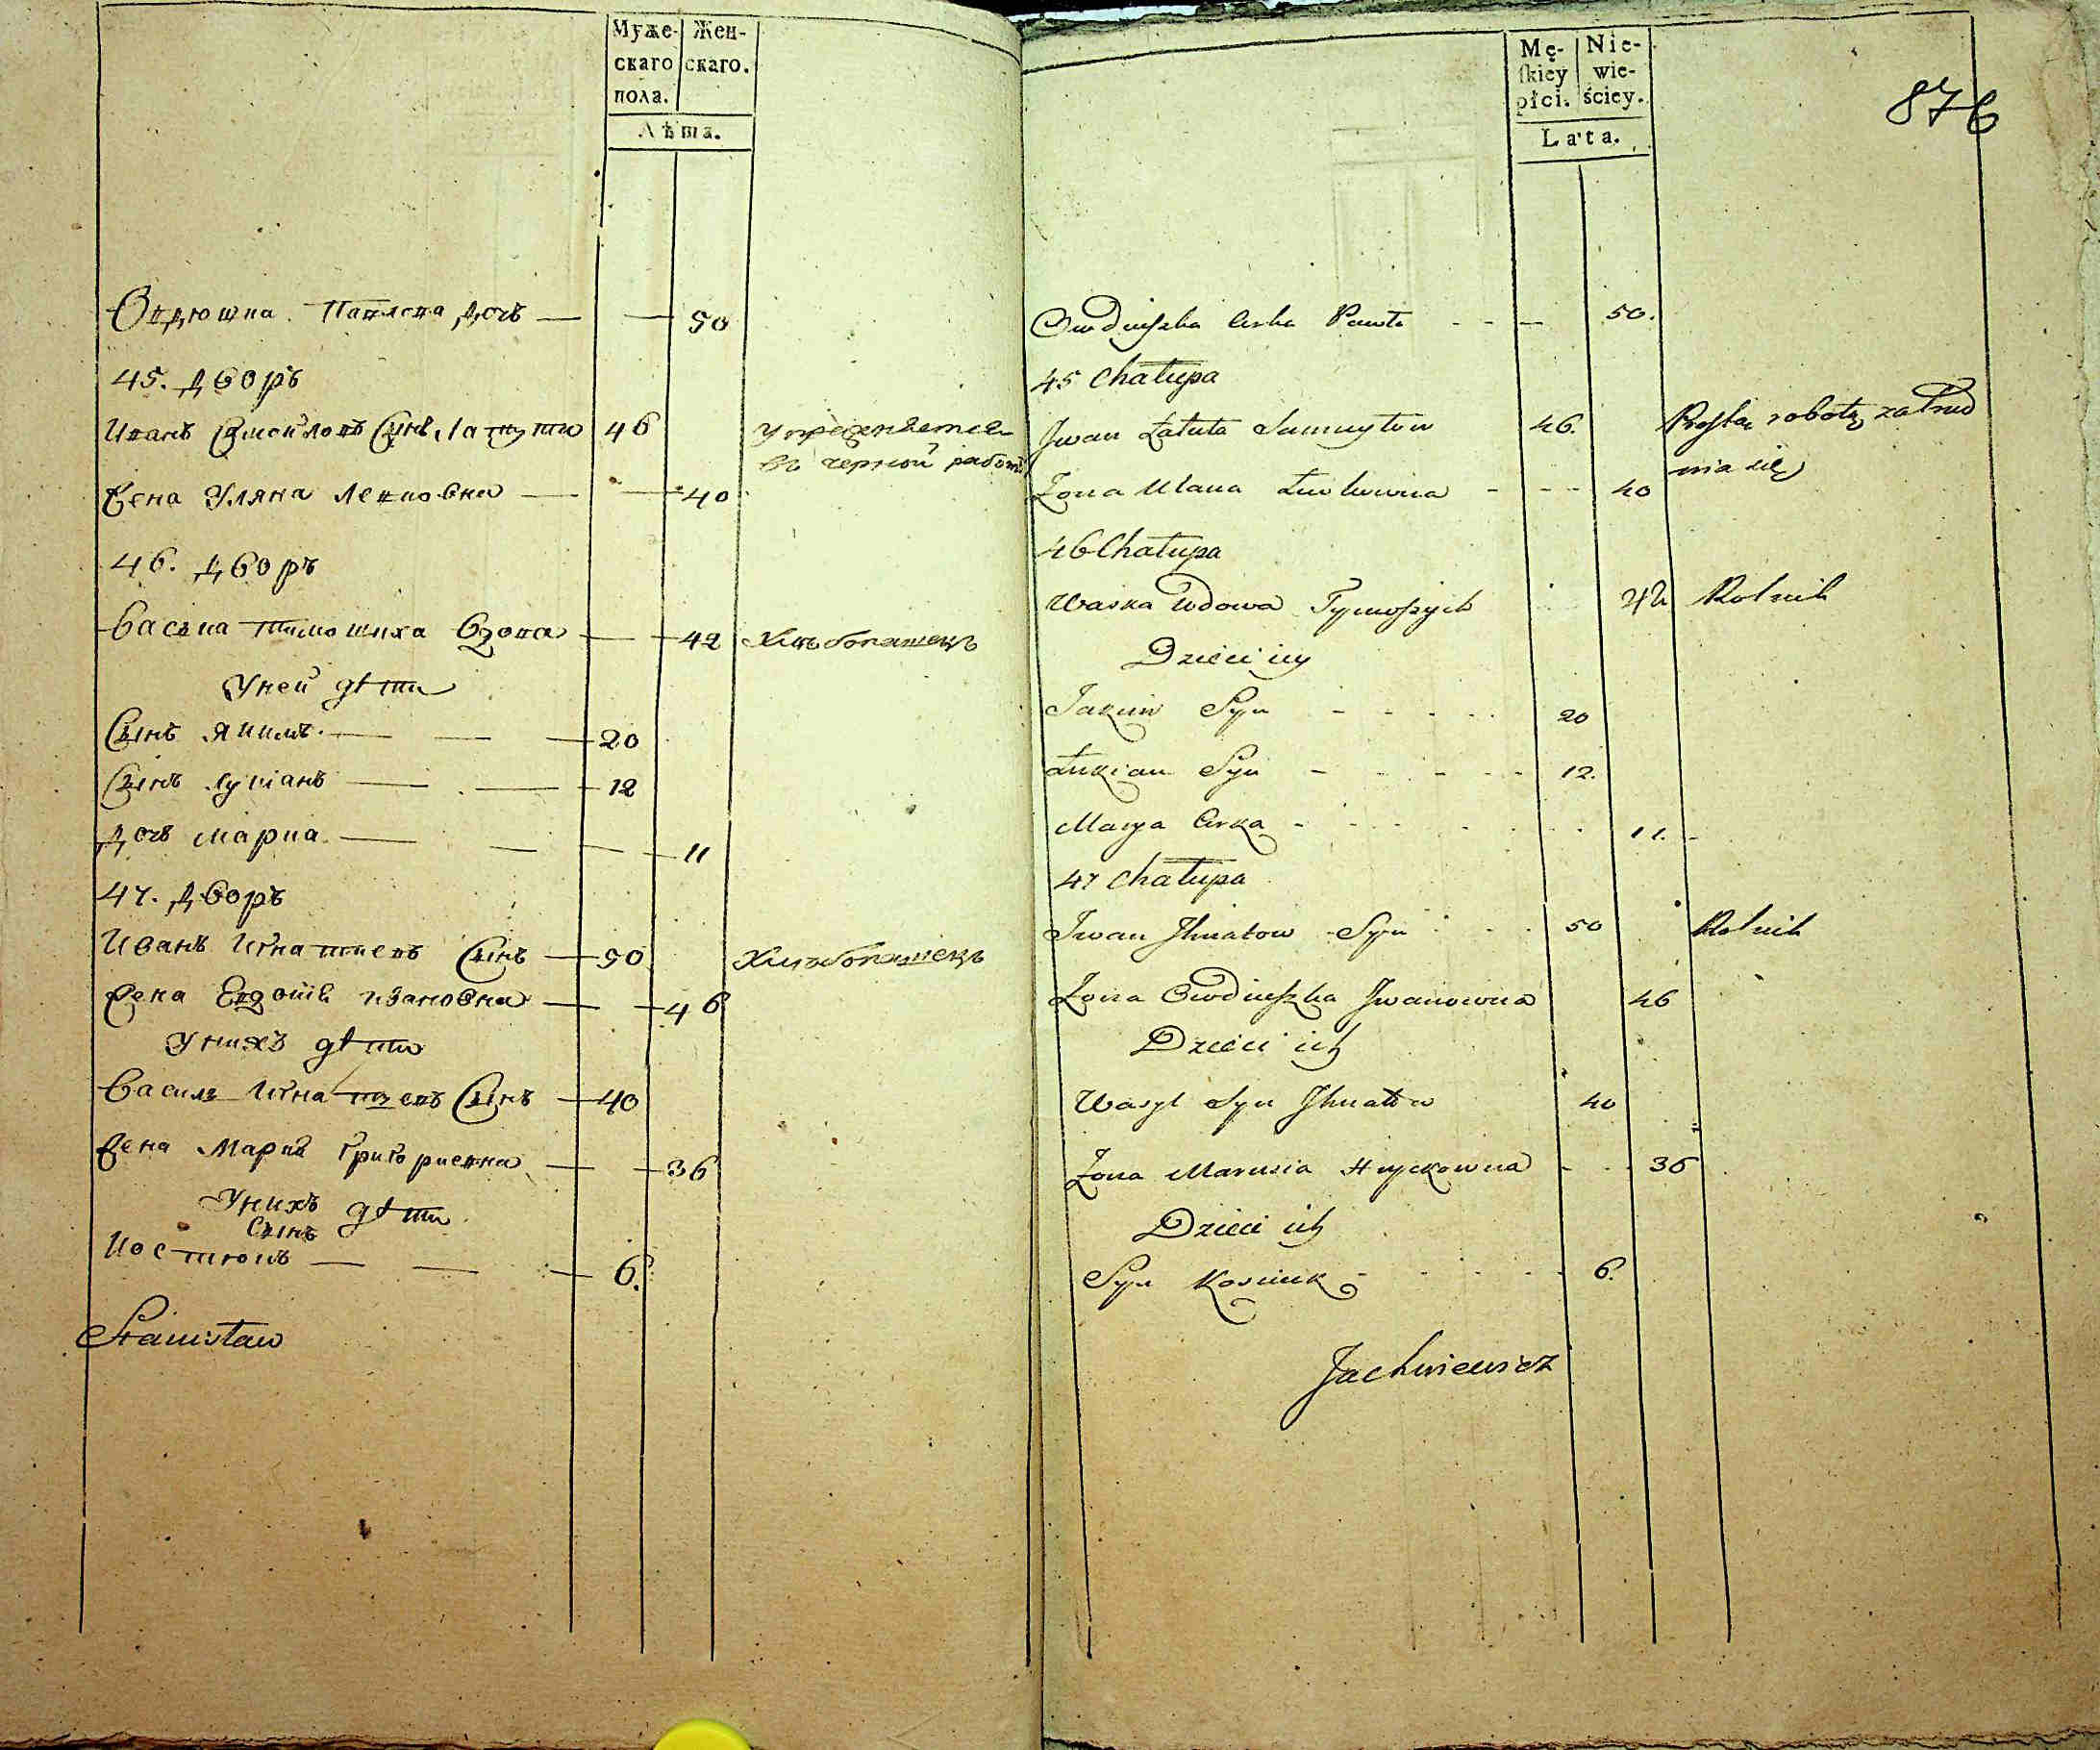 Муже-
скаго
пола.
Жен-
скаго.
Лѣта.
Овдюшка Павлова дочь — — 50
45. дворъ
Иванъ Самойловъ Сынъ Латута 46 упражняется
въ черной работѣ
Жена Уляна Левковна — — 40
46. дворъ
Васька Тимошиха Вдова — — 42 Хлѣбопашецъ
У ней дѣти
Сынъ Якимъ — — — 20
Сынъ Лукіанъ — — — 12
Дочь Мариа — — — — 11
47. дворъ
Иванъ Игнатиевъ Сынъ — 50 Хлѣбопашецъ
Жена Евдотя Ивановна — — 46
У нихъ дѣти
Василь Игнатиевъ Сынъ — 40
Жена Мария Григориевна — — 36
У нихъ дѣти
Сынъ
Костюкъ — — — 6.
Stanisław
Mę-
skiey
płci.
Nie-
wie-
ściey.
Lata.
876
Owdiuszka Curka Pawła - - — 50.
45 Chałupa
Jwan Łatuta Samuyłow 46. Prostą robotą zatrud
nia się
Żona Ulana Lewkowna - - - 40
46 Chałupa
Waska Wdowa Tymoszych 42 Rolnik
Dzieci iey
Jakim Syn - - - - 20
Łukian Syn - - - - - 12.
Marya Curka - - - - - - 11.
47 Chałupa
Jwan Jhnatow Syn - - - 50 Rolnik
Żona Owdiuszka Jwanowna 46
Dzieci ich
Wasyl Syn Jhnatow 40
Żona Marusia Hryckowna - - 36
Dzieci ich
Syn Kosciuk - - - - - 6.
Jachniewicz